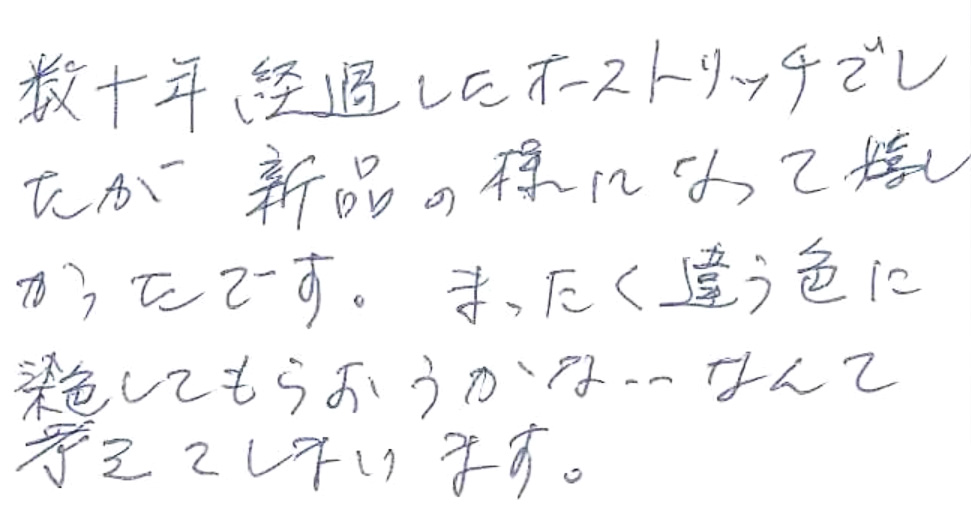 数十年経過したオーストリッチでし
たが 新品の様になって嬉し
かったです。 まったく違う色に
染色してもらおうかな... なんて
考えてしまいます。